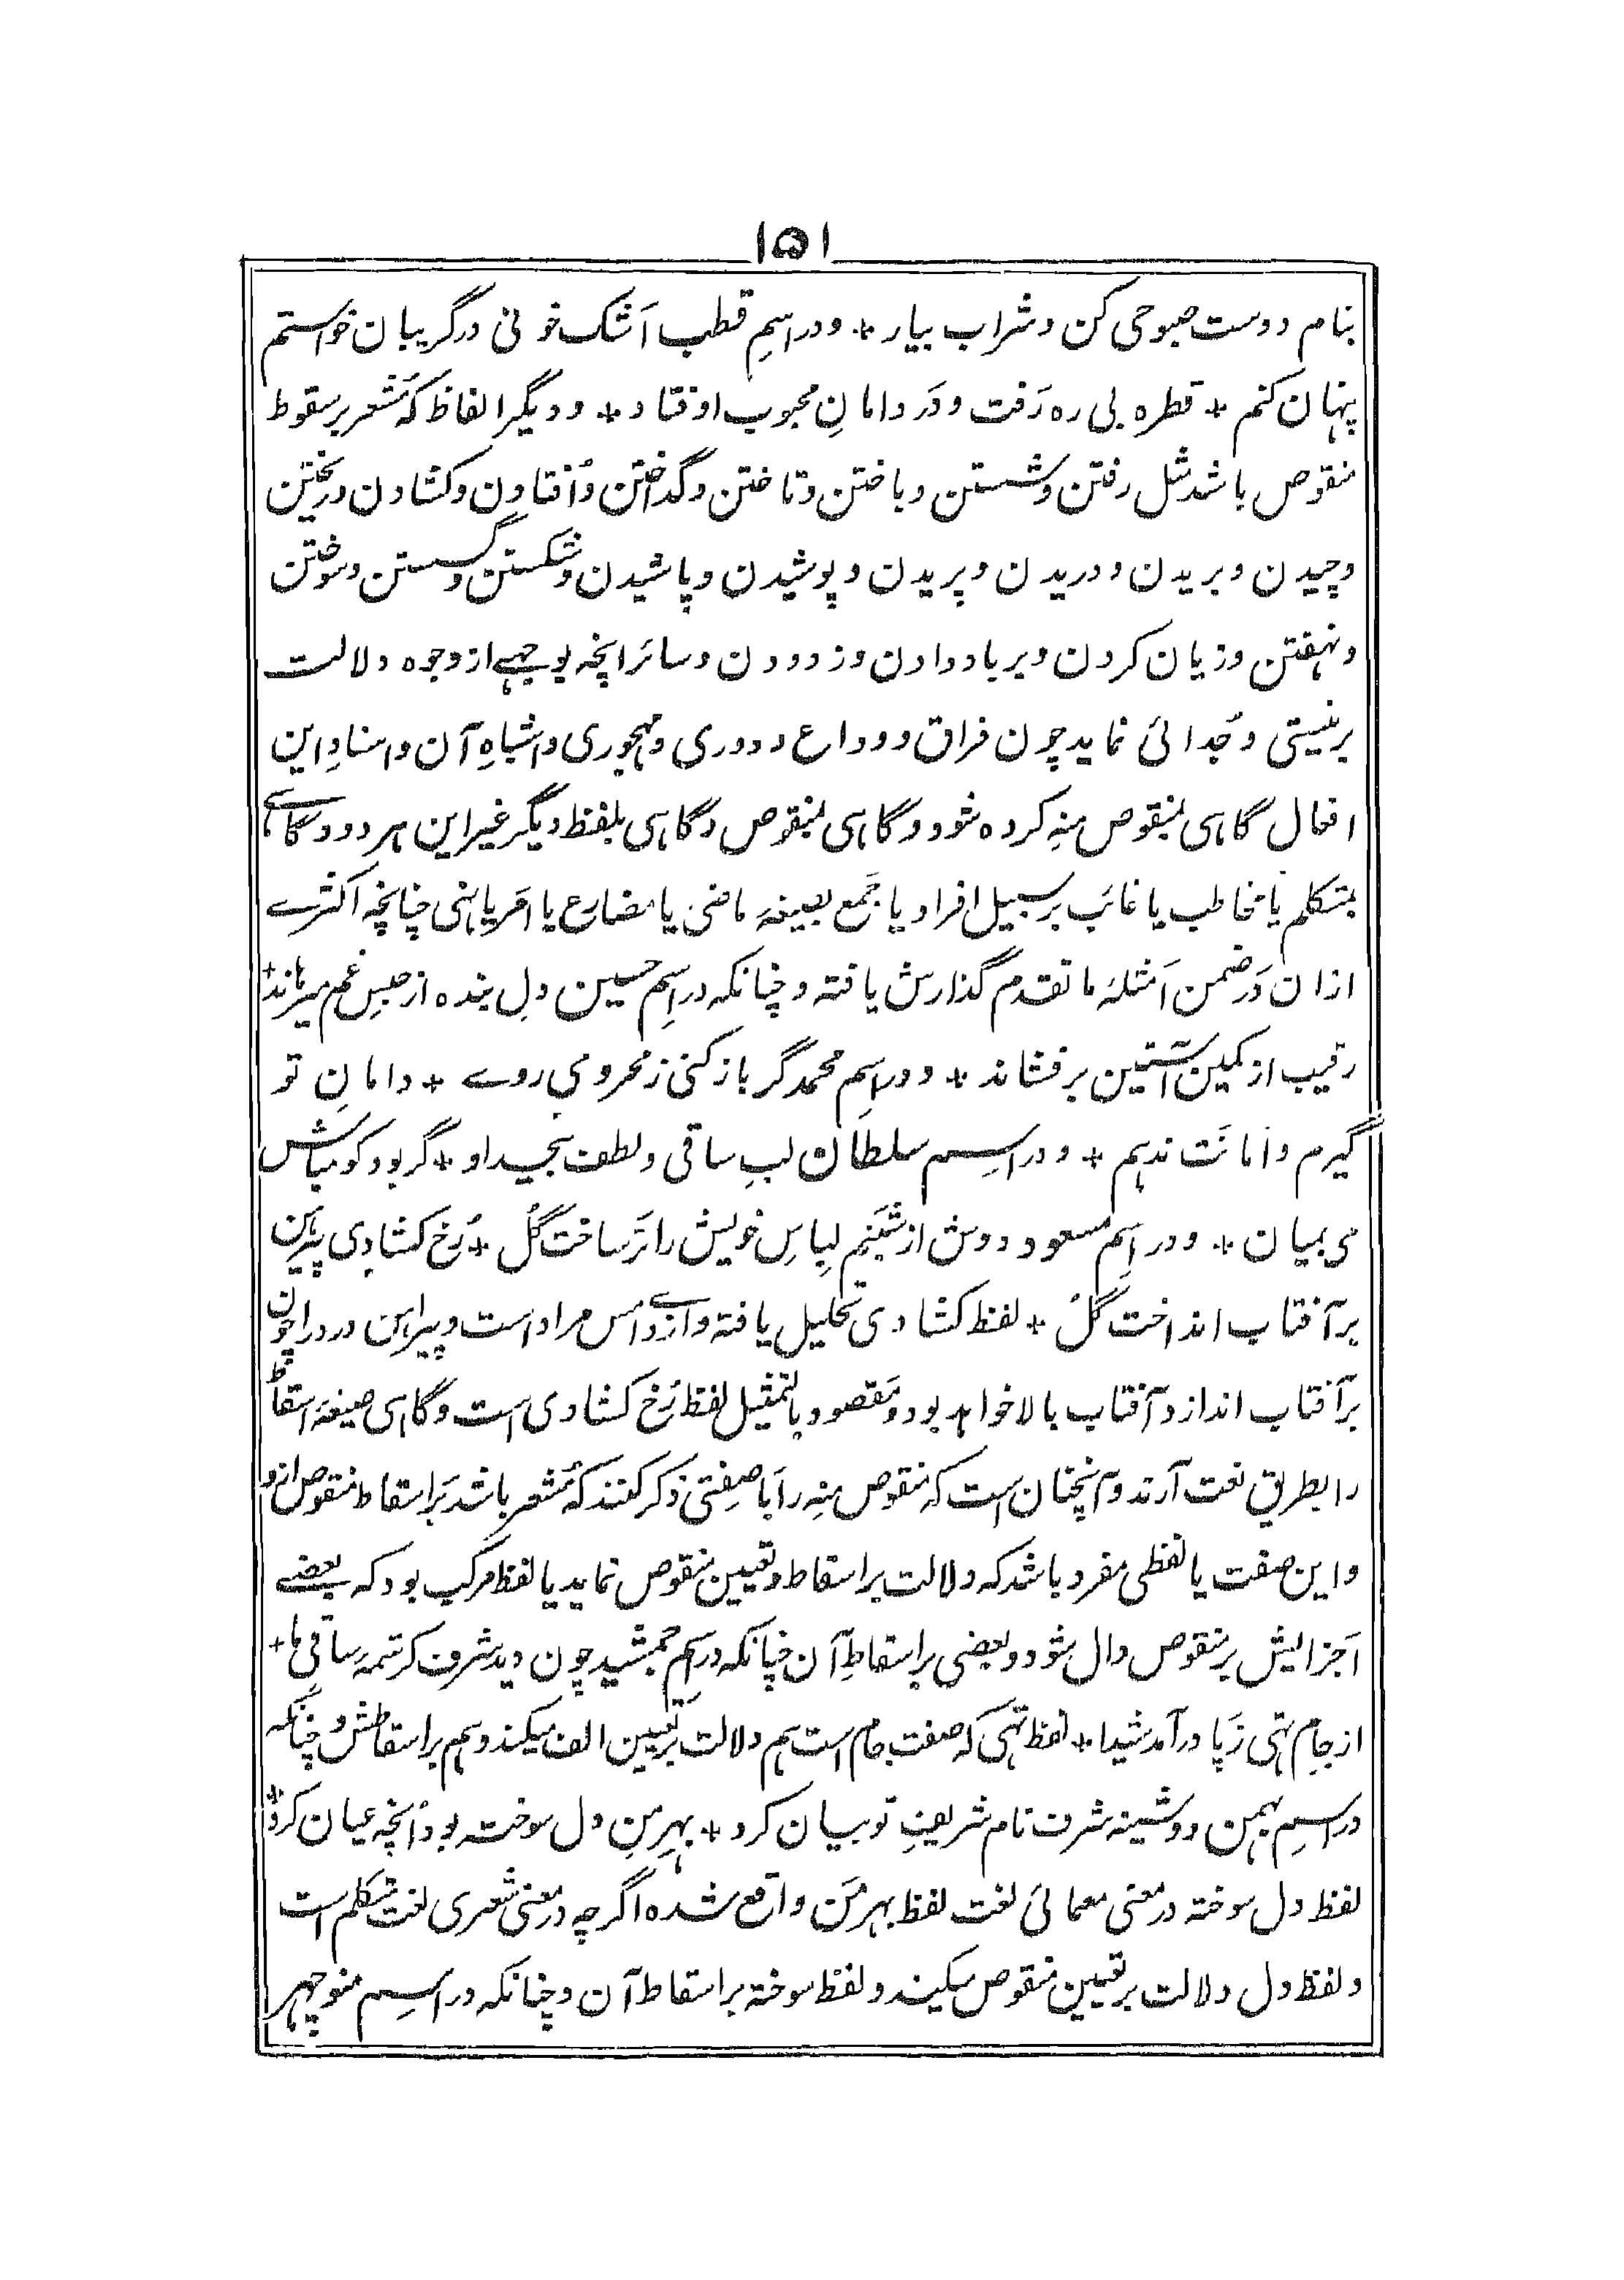 ۱۵۱
بنام دوست صبوحی کن و شراب بیار * و در اسمِ قطب اَشک خونی در گریبان خواستم
پنهان کنم * قطره بی ره رَفت و دَر دامانِ محبوب اوفتاد * و دیگر الفاظ که مُشعر بر سقوط
منقوص باشد مثل رفتن و شستن و باختن و تاختن و گداختن و اُفتادن و کشادن و ریختن
و چیدن و بریدن و دریدن و پریدن و پوشیدن و پاشیدن و شکستن و گسستن و سوختن
و نهفتن و زیان کردن و بر باد دادن و زدودن و سائر انچه بوجهے از وجوه دلالت
بر نیستی و جُدائی نماید چون فراق و وداع و دوری و مهجوری و اشباهِ آن و اسنادِ این
افعال گاهی بمنقوص منهِ کرده شود و گاهی بمنقوص و گاهی بلفظ دیگر غیر این هر دو و گاهے
بمتکلم یا مخاطب یا غائب بر سبیل افراد یا جمع بصیغهٔ ماضی یا مضارع یا امر یا نهی چنانچه اکثرے
ازان دَر ضمن اَمثلهٔ ما تقدم گذارش یافته و چنانکه در اِسم حسین دلِ بنده از حبسِ غم میرهاند *
رقیب از کمین آستین بر فشاند * و در اِسم محمد گر باز کنی ز محرومی روے * دامانِ تو
گیرم و اَمانَت ندهم * و در اسِم سلطان لبِ ساقی و لطف بیحید او * گر بود کو مباش
می بمیان * و در اِسم مسعود دوش از شبَنم لِباسِ خویش را تَر ساخت گل * رُخ کشادی پیرهن
بر آفتاب انداخت گلُ * لفظ کشادی تحلیل یافته و از دے اَمس مراد است و پیراهن در در را چون
بر آفتاب اندازد آفتاب بالا خواهد بود و مَقصود بالتمثیل لفظ رُخ کشادی است و گاهی صیغهٔ اسقاط
را بطریق نعت آرند و آنچنان است که منقوص منهِ را با صِفتی ذکر کنند که مُشعر باشد بَر اسقاط منقوص ازو
و این صفت یا لفظی مفرد باشد که دلالت بر اسقاط و تعیین منقوص نماید یا لفظ مرکب بود که بعضے
اَجزایش بر منقوص دال شود و بعضی بر اسقاطِ آن چنانکه در اسم جمشید چون دید شرف کرشمه ساقیِ ما +
از جامِ تهی زَ پا در آمد شیدا * لفظ تهی که صفت جام است هم دلالت بر تَعیین الف میکند و هم بر اسقاطش و چنانکه
در اسمِ بهمن دوشینه شرف نام شریفِ تو بیان کرد * بهرِ من دل سوخته بود اُنچه عیان کرد *
لفظ دل سوخته در معنی معمائی نعت لفظ بهر مَن واقع شده اگرچه در معنیِ شعری نعت متکلم است
و لفظ دل دلالت بر تعیین منقوص میکیند و لفظ سوخته بر اسقاط آن و چنانکه در اسِم منوچهر